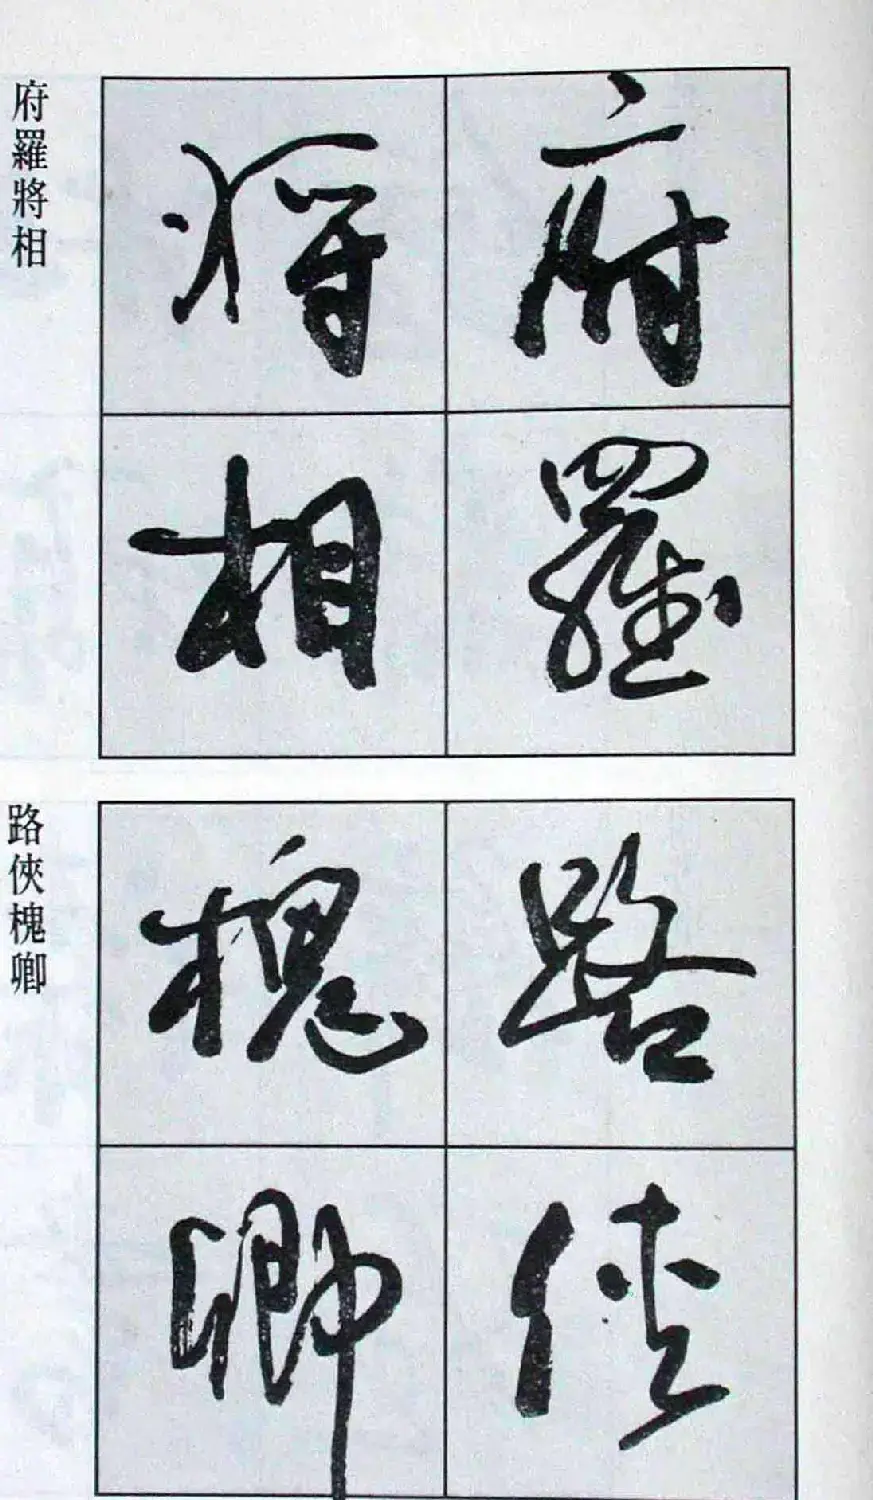 府羅
將相
府羅將相
路俠
槐卿
路俠槐卿